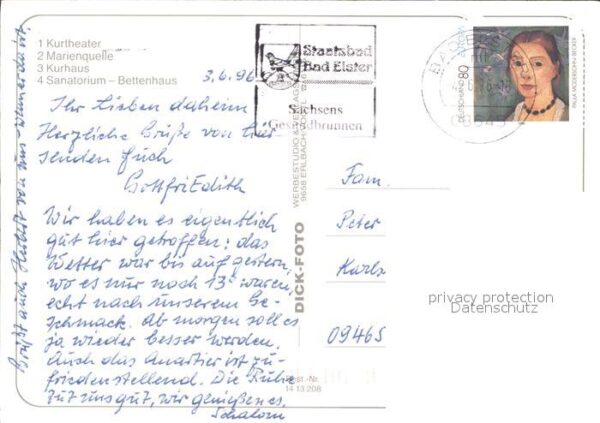 1 Kurtheater
2 Marienquelle
3 Kurhaus
4 Sanatorium – Bettenhaus
3.6.96
Ihr Lieben daheim
Herzliche Grüße von hier
senden Euch
GottfriEdith
Wir haben es eigentlich
gut hier getroffen: das
Wetter war bis auf gestern,
wo es nur noch 13° waren,
echt nach unserem Ge-
schmack. Ab morgen soll es
ja wieder besser werden.
Auch das Quartier ist zu-
friedenstellend. Die Ruhe
tut uns gut, wir genießen es.
Schalom
Grüßt auch Herbert von uns
Staatsbad
Bad Elster
Sachsens
Gesundbrunnen
WERBESTUDIO & VERLAG
9658 ERLBACH/VOGTL.
DICK-FOTO
Best.-Nr.
14 13 208
DEUTSCHLAND 80
PAULA MODERSOHN-BECKER
Fam.
Peter
Karls
09465
privacy protection
Datenschutz